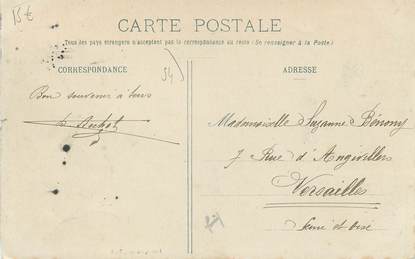 15€
CARTE POSTALE
Tous les pays étrangers n'acceptent pas la correspondance au recto (Se renseigner à la Poste)
CORRESPONDANCE
54
ADRESSE
Bon souvenir à tous
Mademoiselle Suzanne Bénomy
7 Rue d'Angivillers
Versailles
Seine et Oise